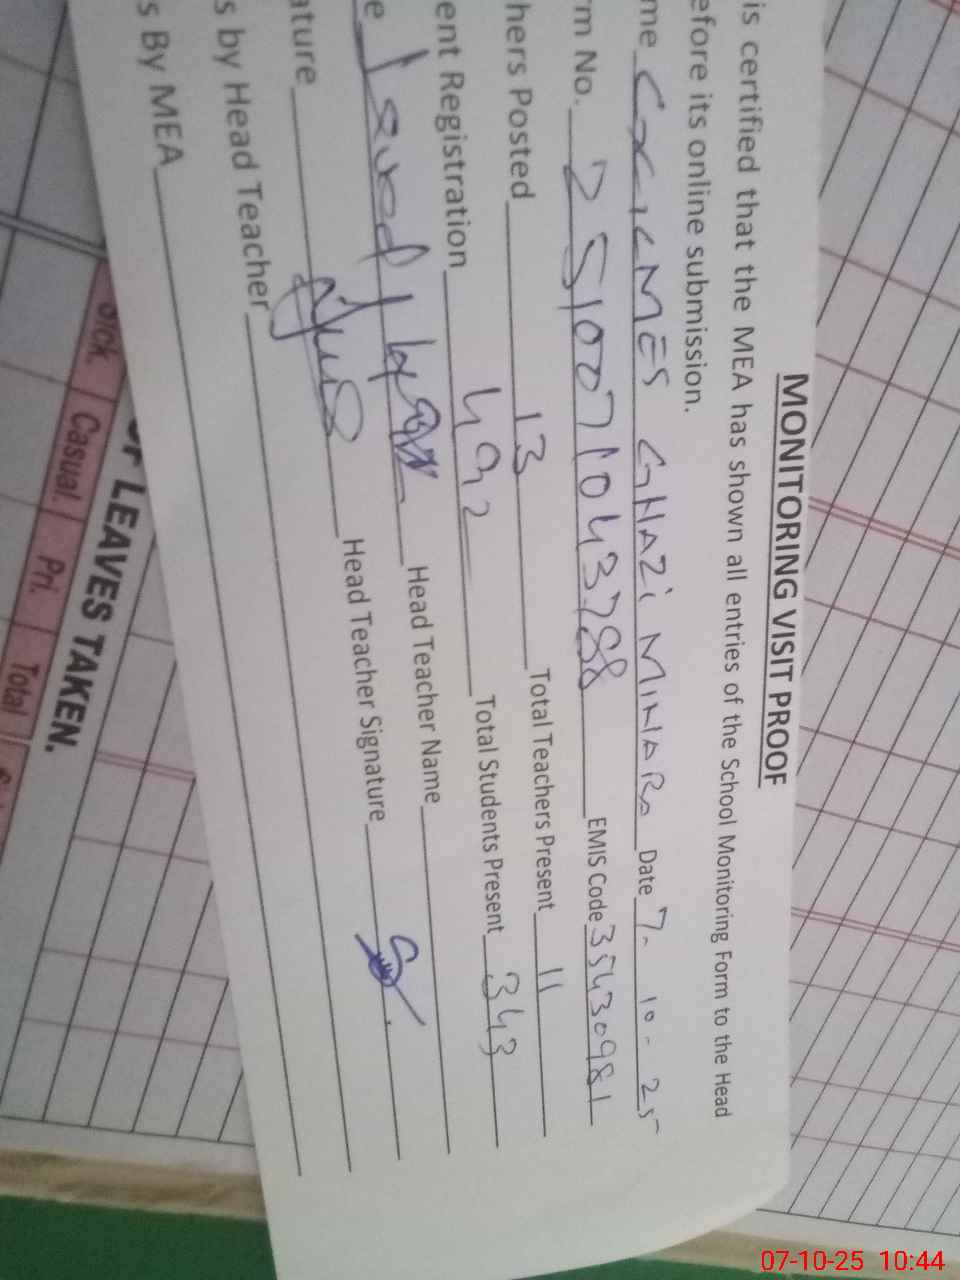 MONITORING VISIT PROOF
is certified that the MEA has shown all entries of the School Monitoring Form to the Head
efore its online submission.
me GHAZI MINARA Date 7-10-25
rm No. 2510071043788 EMIS Code 35430981
hers Posted 13 Total Teachers Present 11
ent Registration 492 Total Students Present 343
e Javed Head Teacher Name
ature Head Teacher Signature
s by Head Teacher
s By MEA
OF LEAVES TAKEN.
Sick. Casual. Pri. Total
07-10-25 10:44